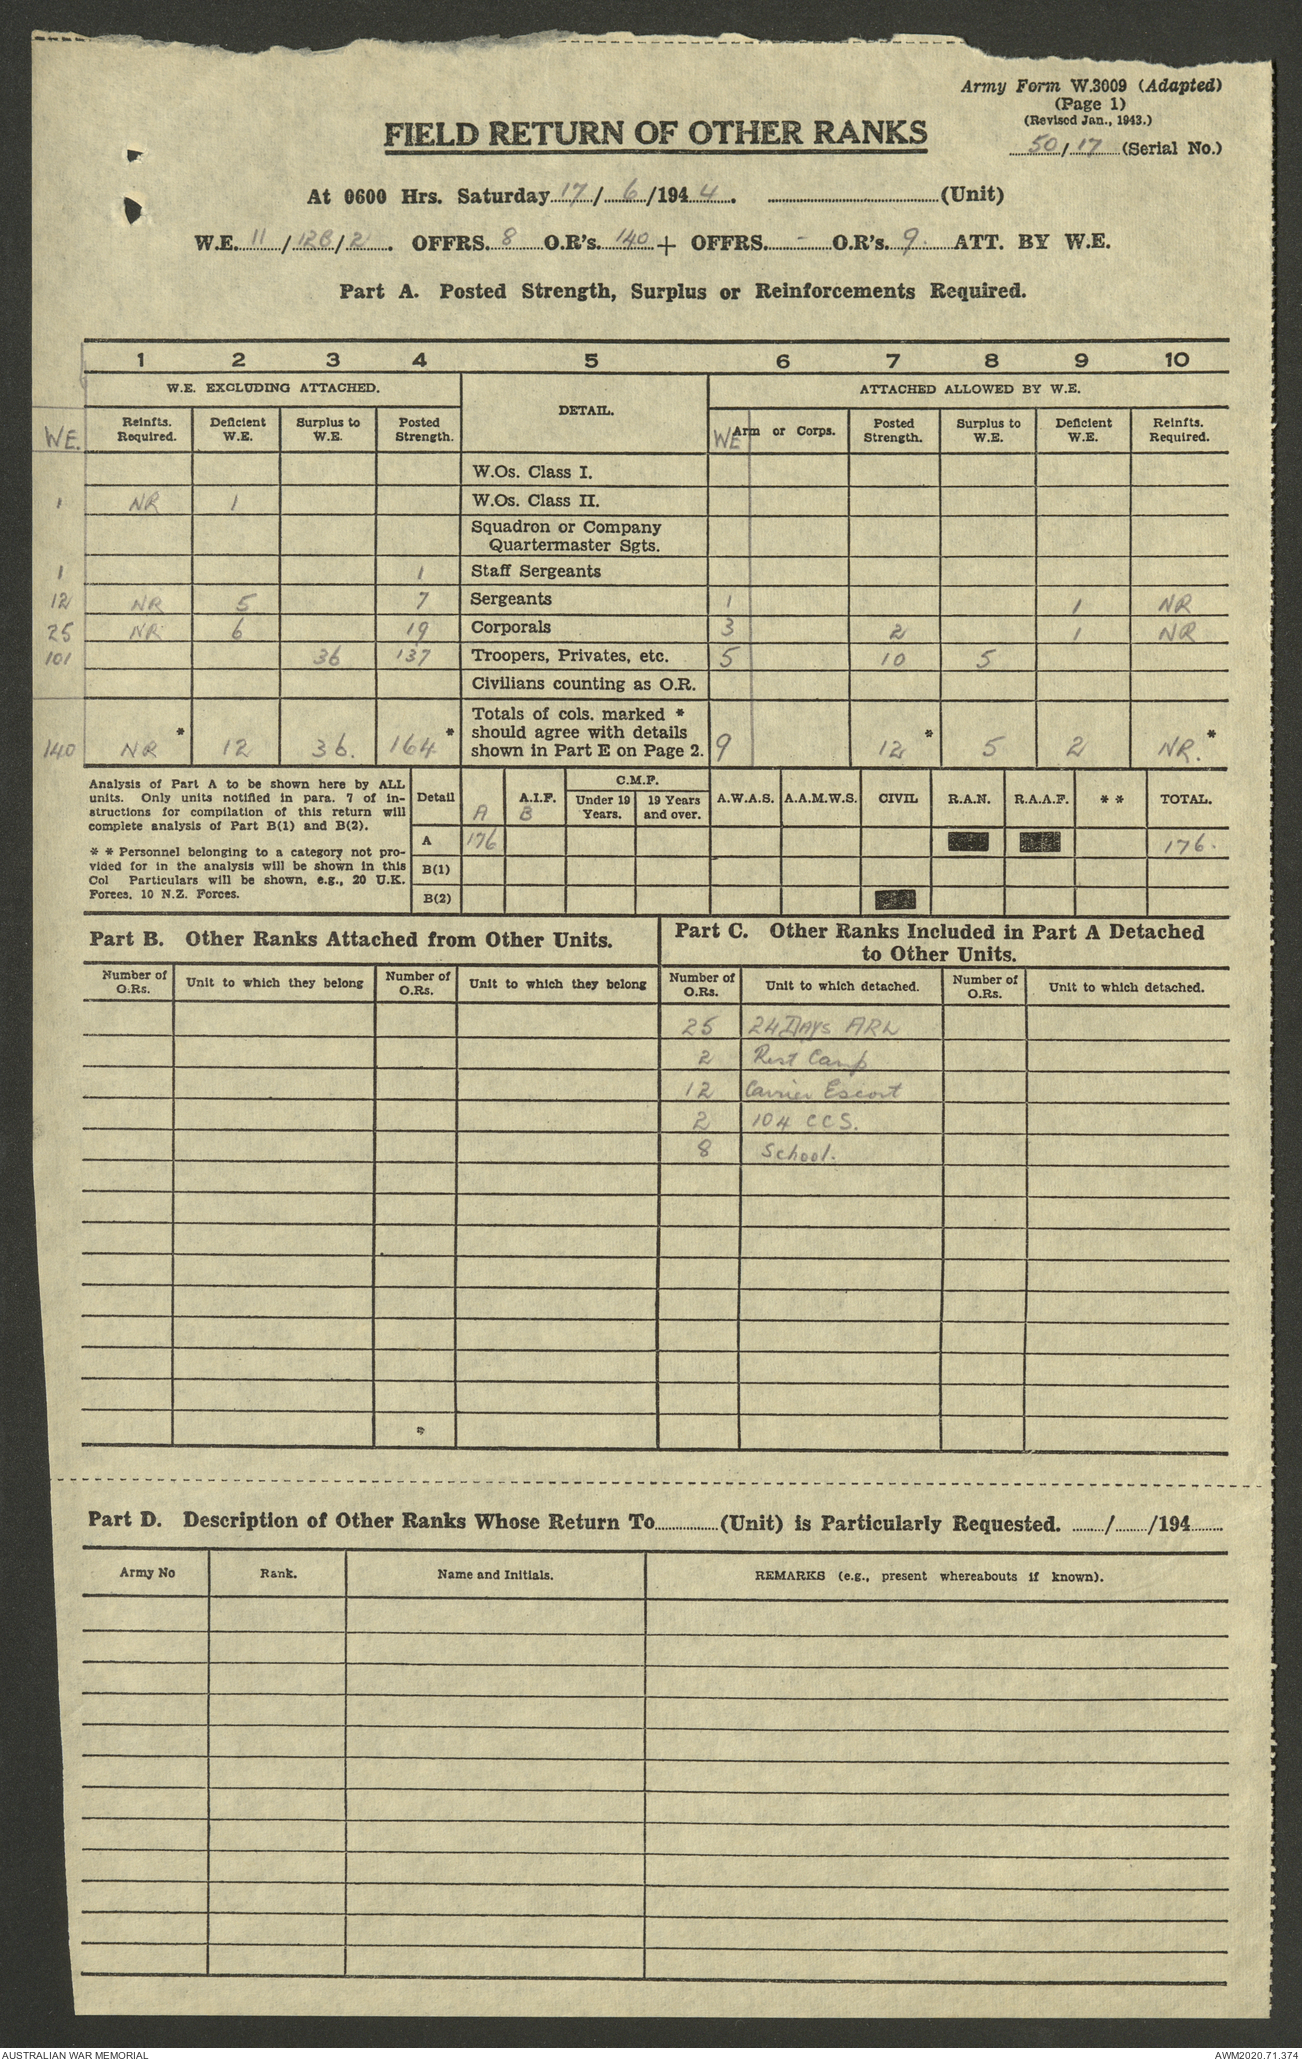 Army Form W.3009 (Adapted)
(Page 1)
(Revised Jan., 1943.)
50/17 (Serial No.)
FIELD RETURN OF OTHER RANKS
At 0600 Hrs. Saturday 17/6/1944. (Unit)
W.E. 11/12B/2. OFFRS. 8 O.R's. 140 + OFFRS. - O.R's. 9. ATT. BY W.E.
Part A. Posted Strength, Surplus or Reinforcements Required.
1 2 3 4 5 6 7 8 9 10
W.E. EXCLUDING ATTACHED. DETAIL. ATTACHED ALLOWED BY W.E.
WE. Reinfts. Required. Deficient W.E. Surplus to W.E. Posted Strength. WE Arm or Corps. Posted Strength. Surplus to W.E. Deficient W.E. Reinfts. Required.
W.Os. Class I.
1 NR 1 W.Os. Class II.
Squadron or Company
Quartermaster Sgts.
1 1 Staff Sergeants
12 NR 5 7 Sergeants 1 1 NR
25 NR 6 19 Corporals 3 2 1 NR
101 36 137 Troopers, Privates, etc. 5 10 5
Civilians counting as O.R.
Totals of cols. marked *
should agree with details
140 NR * 12 36. 164 * shown in Part E on Page 2. 9 12 * 5 2 NR. *
Analysis of Part A to be shown here by ALL
units. Only units notified in para. 7 of in-
structions for compilation of this return will
complete analysis of Part B(1) and B(2).
* * Personnel belonging to a category not pro-
vided for in the analysis will be shown in this
Col Particulars will be shown, e.g., 20 U.K.
Forces, 10 N.Z. Forces.
Detail A A.I.F. B C.M.F. Under 19 Years. 19 Years and over. A.W.A.S. A.A.M.W.S. CIVIL R.A.N. R.A.A.F. * * TOTAL.
A 176 176.
B(1)
B(2)
Part B. Other Ranks Attached from Other Units.
Part C. Other Ranks Included in Part A Detached
to Other Units.
Number of O.Rs. Unit to which they belong Number of O.Rs. Unit to which they belong Number of O.Rs. Unit to which detached. Number of O.Rs. Unit to which detached.
25 24 Days ARL
2 Rest Camp
12 Carrier Escort
2 104 CCS.
8 School.
Part D. Description of Other Ranks Whose Return To (Unit) is Particularly Requested. / /194
Army No Rank. Name and Initials. REMARKS (e.g., present whereabouts if known).
AUSTRALIAN WAR MEMORIAL AWM2020.71.374